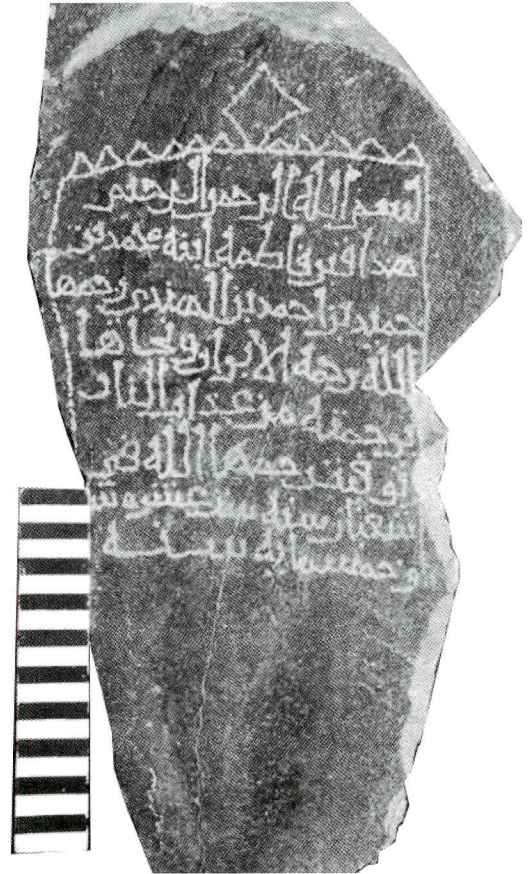 بسم الله الرحمن الرحيم
هذا قبر فاطمه ابنه محمد بن
حميد بن احمد بن الهندي رحمها
الله رحمه الابرار ونجاها
برحمته من عذاب النار
توفت رحمها الله في
شعبان سنه ست
وخمسمايه سنه